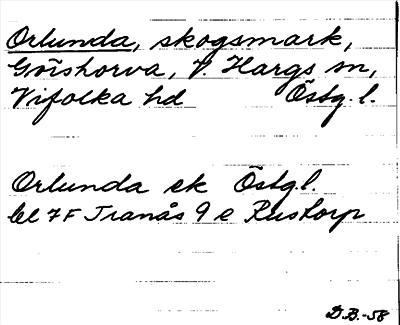 Orlunda, skogsmark,
Göishorva, V. Hargs sn,
Vifolka hd Östg. l.
Orlunda ek Östg.l.
bl 7F Tranås 9 e Rustorp
D.B.-58